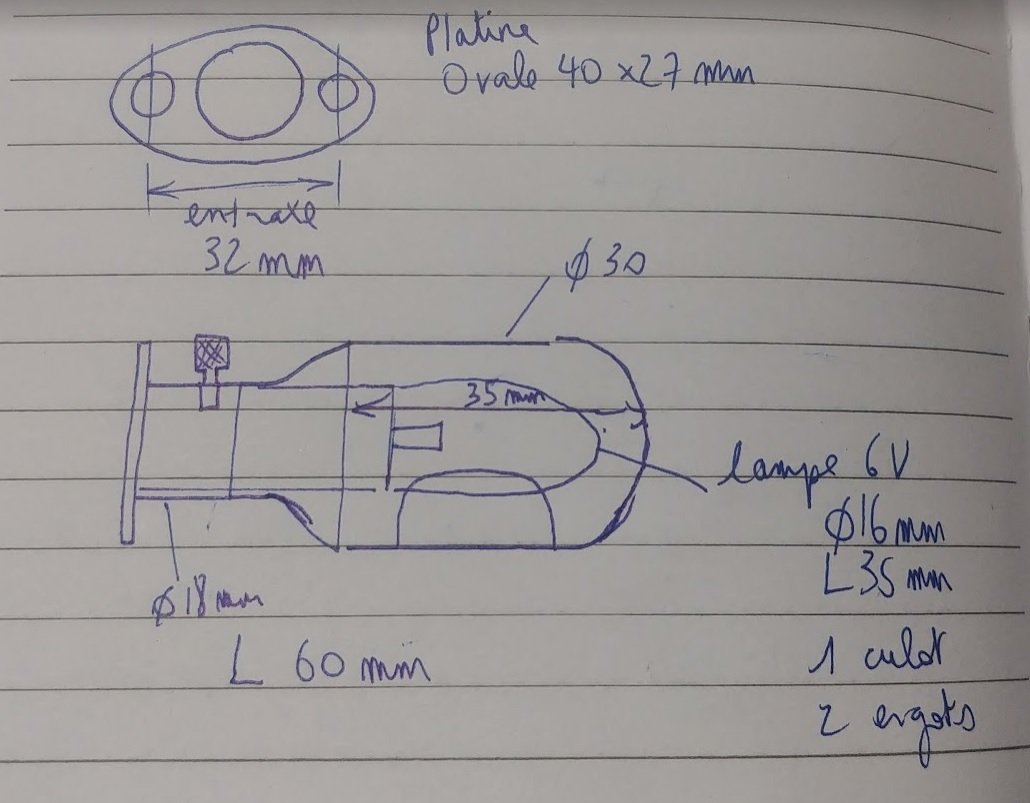 Platine
Ovale 40 x 27 mm
entraxe
32 mm
ϕ 30
35 mm
lampe 6V
ϕ16 mm
L 35 mm
ϕ18 mm
L 60 mm
1 culot
2 ergots